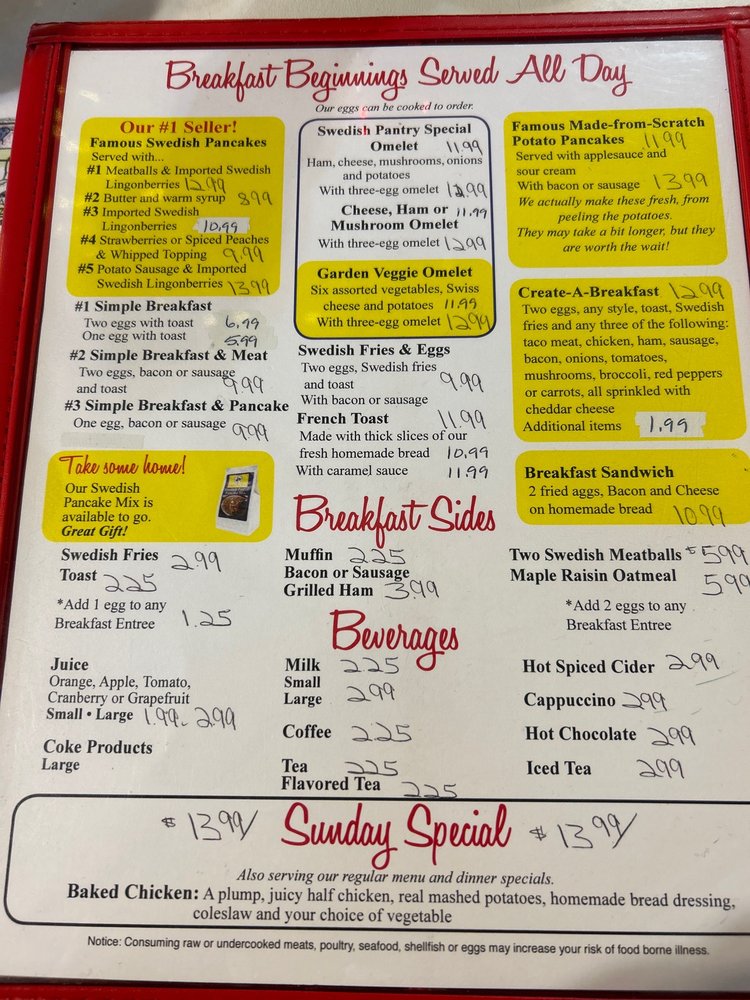 Breakfast Beginnings Served All Day
Our eggs can be cooked to order.
Our #1 Seller!
Famous Swedish Pancakes
Served with...
#1 Meatballs & Imported Swedish
Lingonberries 12.99
#2 Butter and warm syrup 8.99
#3 Imported Swedish
Lingonberries 10.99
#4 Strawberries or Spiced Peaches
& Whipped Topping 9.99
#5 Potato Sausage & Imported
Swedish Lingonberries 13.99
#1 Simple Breakfast
Two eggs with toast 6.99
One egg with toast 5.99
#2 Simple Breakfast & Meat
Two eggs, bacon or sausage
and toast 9.99
#3 Simple Breakfast & Pancake
One egg, bacon or sausage 9.99
Take some home!
Our Swedish
Pancake Mix is
available to go.
Great Gift!
Swedish Pantry Special
Omelet 11.99
Ham, cheese, mushrooms, onions
and potatoes
With three-egg omelet 12.99
Cheese, Ham or 11.99
Mushroom Omelet
With three-egg omelet 12.99
Garden Veggie Omelet
Six assorted vegetables, Swiss
cheese and potatoes 11.99
With three-egg omelet 12.99
Swedish Fries & Eggs
Two eggs, Swedish fries
and toast 9.99
With bacon or sausage
11.99
French Toast
Made with thick slices of our
fresh homemade bread 10.99
With caramel sauce 11.99
Famous Made-from-Scratch
Potato Pancakes 11.99
Served with applesauce and
sour cream
With bacon or sausage 13.99
We actually make these fresh, from
peeling the potatoes.
They may take a bit longer, but they
are worth the wait!
Create-A-Breakfast 12.99
Two eggs, any style, toast, Swedish
fries and any three of the following:
taco meat, chicken, ham, sausage,
bacon, onions, tomatoes,
mushrooms, broccoli, red peppers
or carrots, all sprinkled with
cheddar cheese
Additional items 1.99
Breakfast Sandwich
2 fried aggs, Bacon and Cheese
on homemade bread 10.99
Breakfast Sides
Swedish Fries 2.99
Toast 2.25
*Add 1 egg to any
Breakfast Entree 1.25
Muffin 2.25
Bacon or Sausage
Grilled Ham 3.99
Two Swedish Meatballs $5.99
Maple Raisin Oatmeal 5.99
*Add 2 eggs to any
Breakfast Entree
Beverages
Juice
Orange, Apple, Tomato,
Cranberry or Grapefruit
Small • Large 1.99 - 2.99
Coke Products
Large
Milk 2.25
Small
Large 2.99
Coffee 2.25
Tea 2.25
Flavored Tea 2.25
Hot Spiced Cider 2.99
Cappuccino 2.99
Hot Chocolate 2.99
Iced Tea 2.99
$13.99/ Sunday Special $13.99/
Also serving our regular menu and dinner specials.
Baked Chicken: A plump, juicy half chicken, real mashed potatoes, homemade bread dressing,
coleslaw and your choice of vegetable
Notice: Consuming raw or undercooked meats, poultry, seafood, shellfish or eggs may increase your risk of food borne illness.